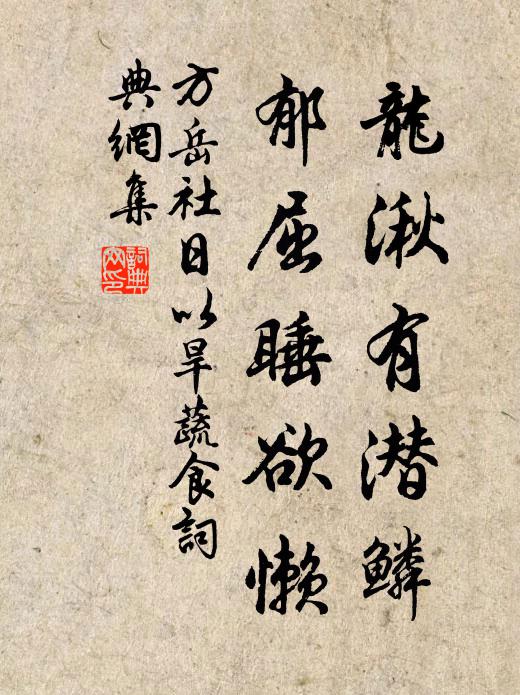 龍湫有潛鱗
郁屈睡欲懶
方岳社日以旱蔬食詞
典網集
詞典